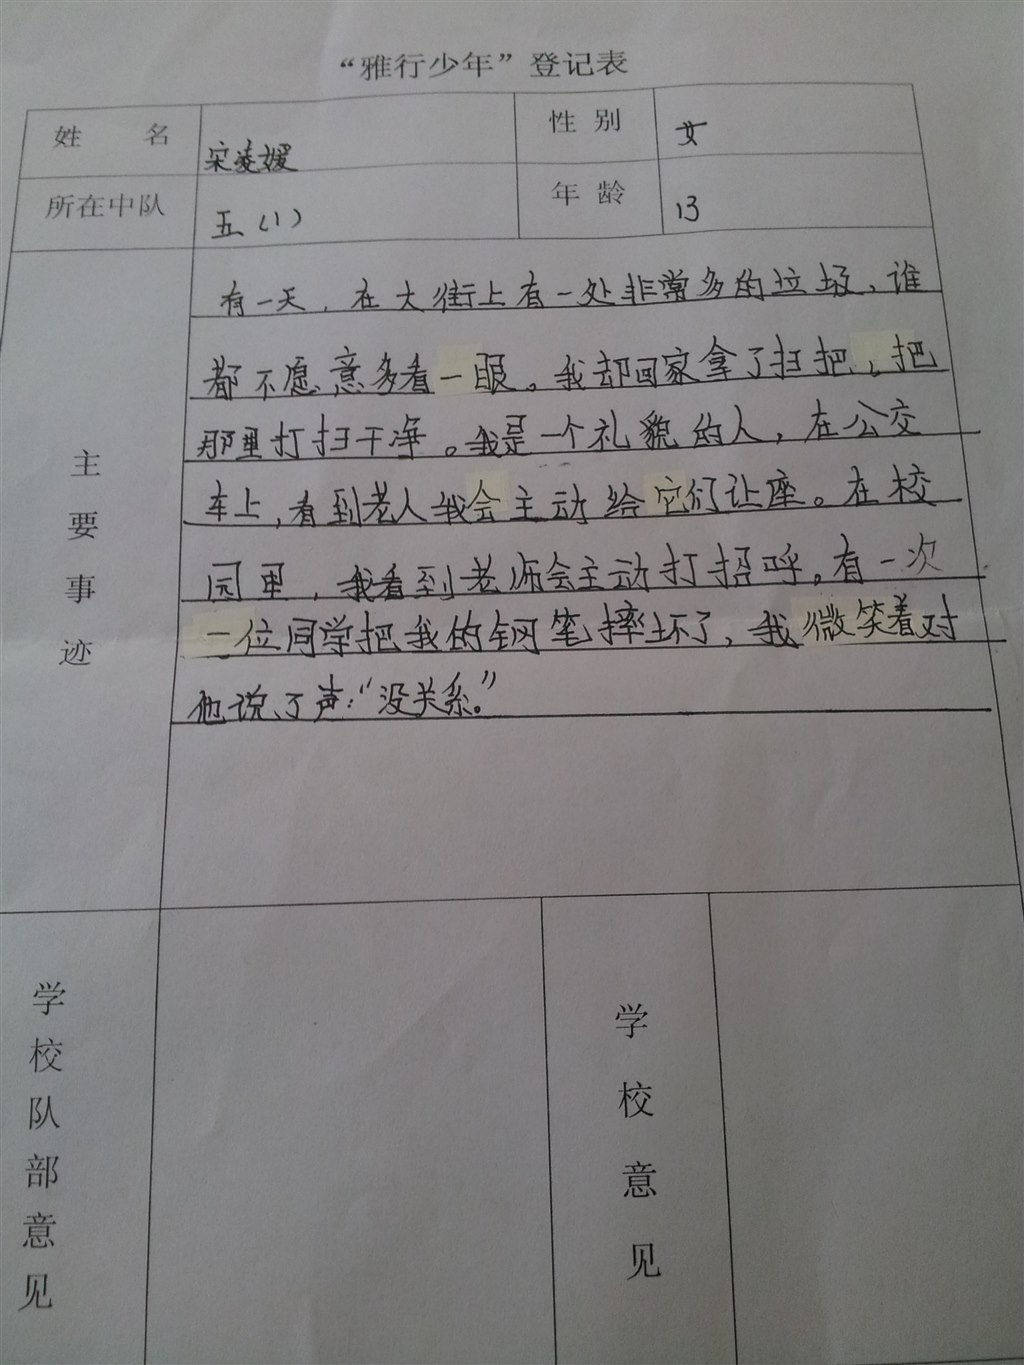 “雅行少年”登记表
姓 名 宋凌媛 性 别 女
所在中队 五(1) 年 龄 13
主要事迹
有一天,在大街上有一处非常多的垃圾,谁
都不愿意多看一眼。我却回家拿了扫把,把
那里打扫干净。我是一个礼貌的人,在公交
车上,看到老人我会主动给它们让座。在校
园里,我看到老师会主动打招呼。有一次
一位同学把我的钢笔摔坏了,我微笑着对
他说了声:“没关系。”
学校队部意见
学校意见